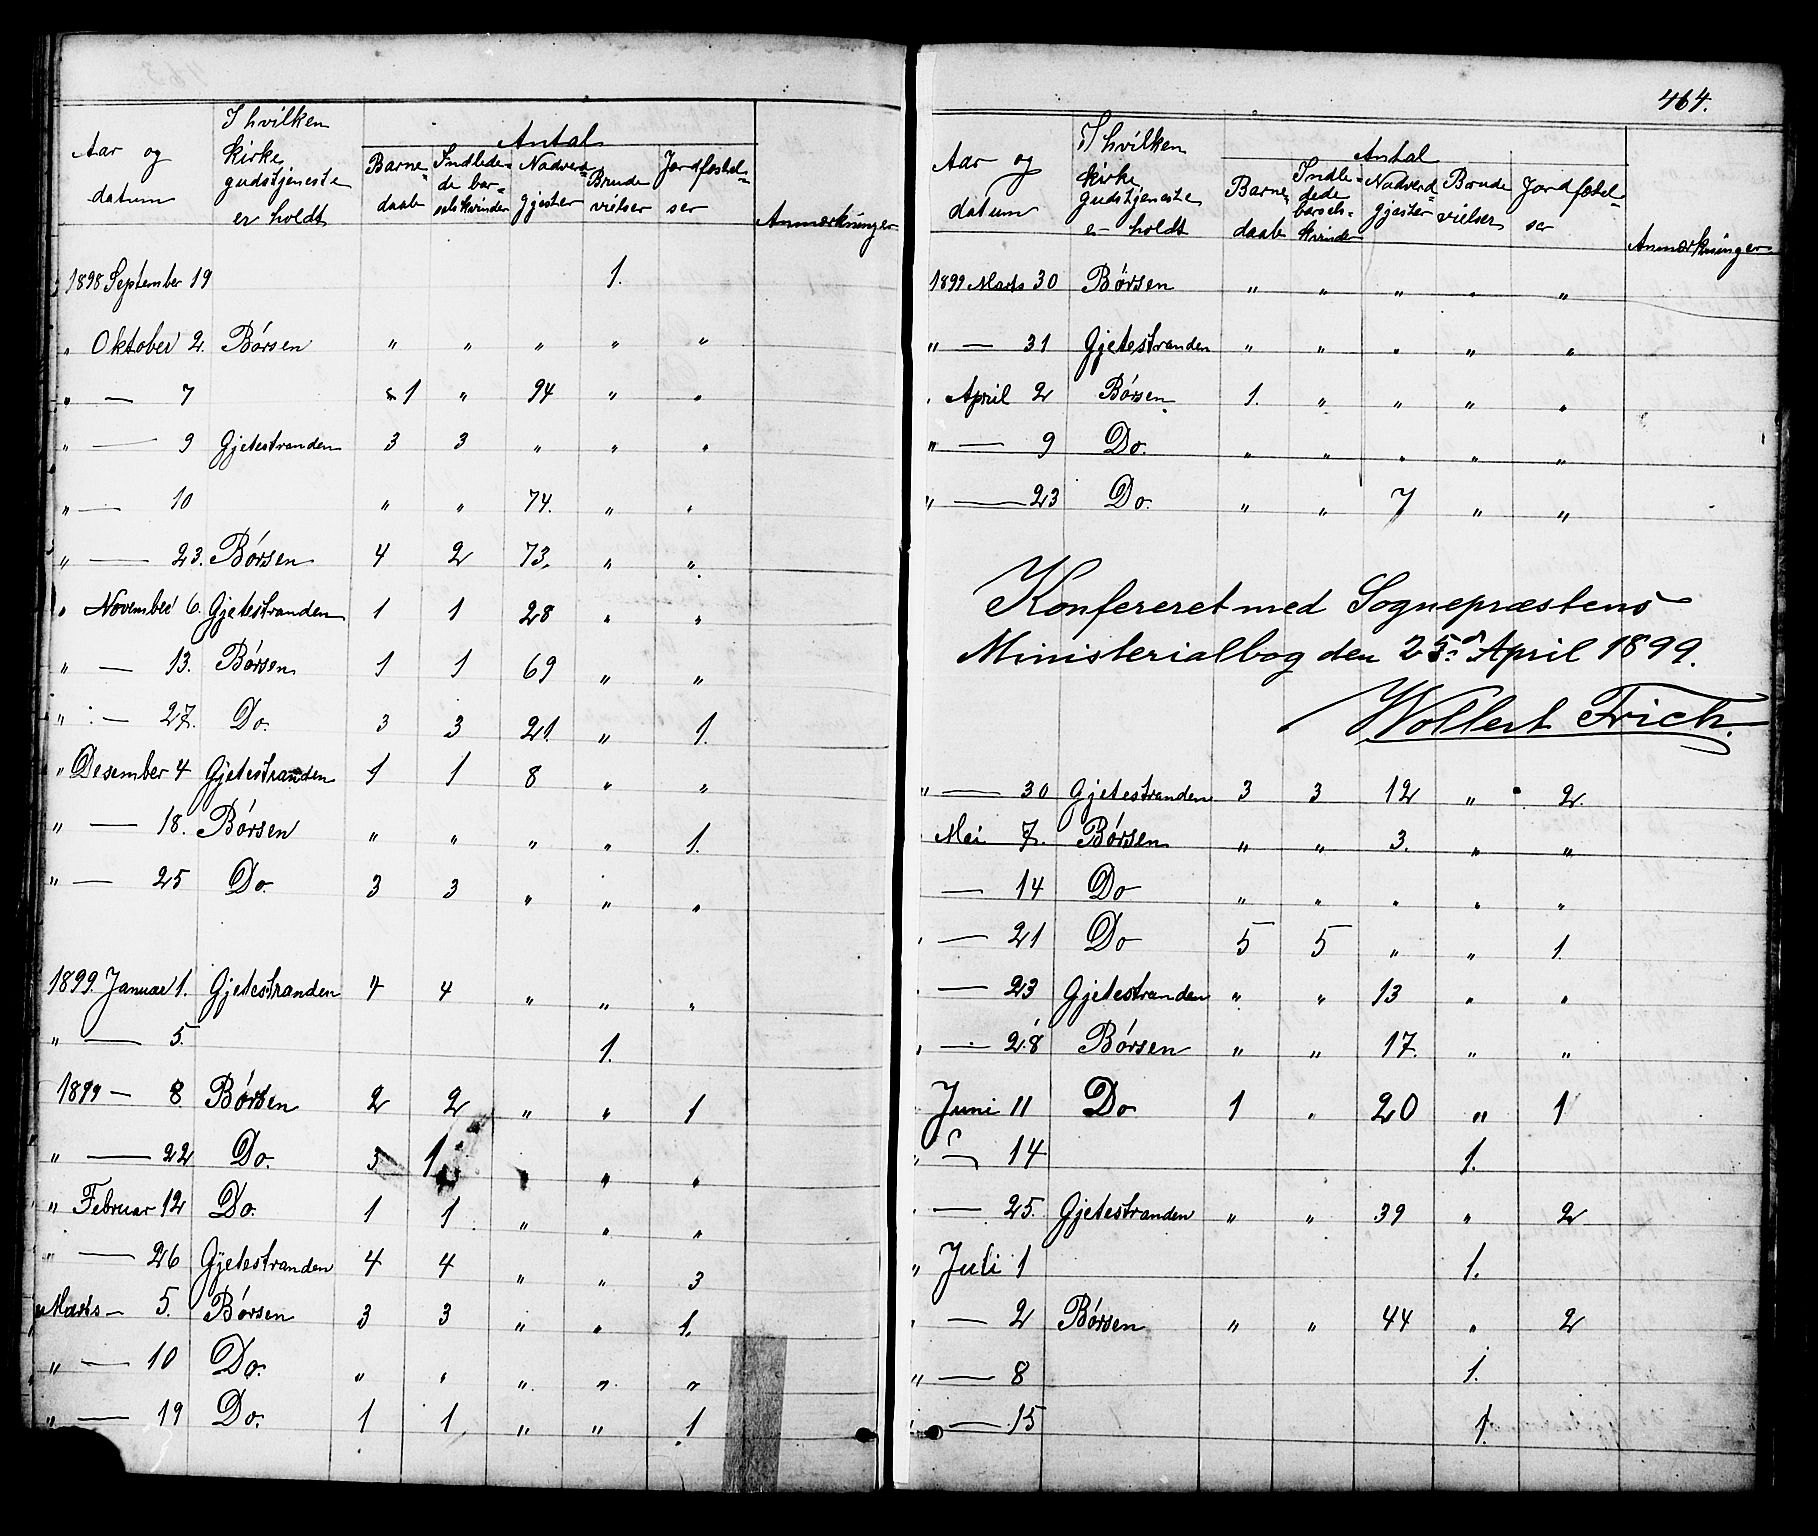 Aar og datum | I hvilken kirke gudstjeneste er holdt | Antal | Anmærkninger
Barnedaab | Indledede barselskvinder | Nadverdgjester | Brudevielser | Jordfæstelser
1898 September 19 1.
„ Oktober 2. Børsen „ „ „ „ „
„ — 7 1 „ 94 „ „
„ — 9 Gjetestranden 3 3 „ „ „
„ — 10 „ „ 74. „ „
„ — 23. Børsen 4 2 73. „ „
„ November 6. Gjetestranden 1 1 28 „ „
„ — 13. Børsen 1 1 69 „ „
„ — 27. Do. 3 3 21. „ 1.
„ Desember 4 Gjetestranden 1 1 8 „ „
„ — 18. Børsen „ „ „ „ 1.
„ — 25 Do. 3 3 „ „ „
1899. Januar 1. Gjetestranden 4 4 „ „ „
„ — 5. 1.
1899 — 8 Børsen 2 2 „ „ 1
„ — 22 Do. 3 1 „ „ „
„ Februar 12 Do. 1 1 „ „ „
„ — 26 Gjetestranden 4 4 „ „ 3
„ Marts — 5. Børsen 3 3 „ „ 1.
„ — 10 Do. „ „ „ „ „
„ — 19 Do. 1 1 „ „ 1
464.
Aar og datum | I hvilken kirke gudstjeneste er holdt | Antal | Anmærkninger
Barnedaab | Indledede barselskvinder | Nadverdgjester | Brudevielser | Jordfæstelser
1899 Marts 30 Børsen „ „ „ „ „
„ — 31 Gjetestranden „ „ „ „ „
„ April 2 Børsen 1. „ „ „ „
„ — 9 Do. „ „ „ „ „
„ — 23 Do. „ „ 7 „ „
Konfereret med Sognepræstens
Ministerialbog den 25. April 1899.
Wollert Frich.
„ — 30 Gjetestranden 3 3 12 „ 2.
Mai 7. Børsen „ „ 3. „ „
— 14 Do „ „ „ „ „
„ — 21 Do 5 5 „ „ 1.
„ — 23 Gjetestranden „ „ 13 „ „
„ — 28 Børsen „ „ 17. „ „
Juni 11 Do 1 „ 20 „ 1
„ — 14 1.
„ — 25. Gjetestranden „ „ 39 „ 2
„ Juli 1 1.
„ — 2 Børsen „ „ 44 „ 2
„ — 8 1.
„ — 15 1.